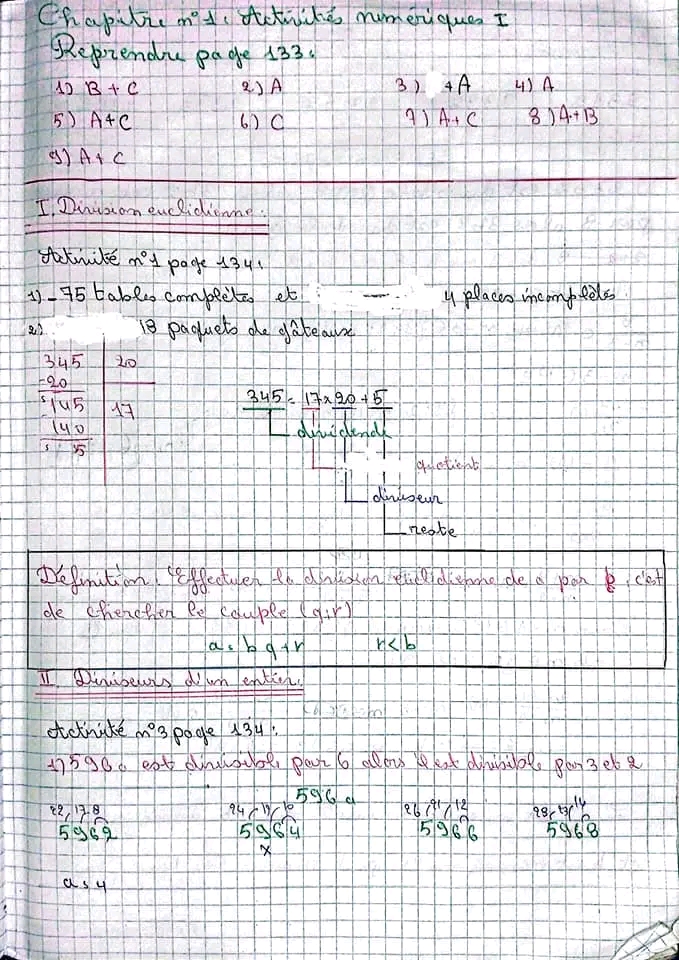 Chapitre n°1: Activités numériques I
Reprendre page 133:
1) B + C 2) A 3) + A 4) A
5) A + C 6) C 7) A + C 8) A + B
9) A + C
I. Division euclidienne:
Activité n°1 page 134:
1) - 75 tables complètes et 4 places incomplètes
2) 18 paquets de gâteaux
345 20
-20
145 17
140
5
345 = 17 x 20 + 5
dividende
quotient
diviseur
reste
Définition: "Effectuer la division euclidienne de a par b, c'est
de chercher le couple (q,r)
a = b q + r r < b
II. Diviseurs d'un entier.
Activité n°3 page 134:
1) 596a est divisible par 6 alors il est divisible par 3 et 2
596a
22, 17, 8 24, 19, 10 26, 21, 12 28, 23, 14
5962 5964 5966 5968
x
a = 4